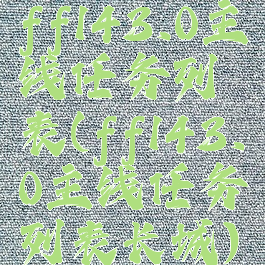 ff143.0主
线任务列
表(ff143.
0主线任务
列表长城)